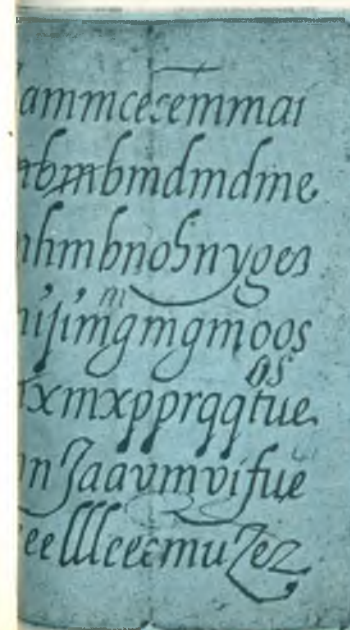 ammcecemmai
mbmbmdmdme
nhmbnohnyges
m
nijimgmgmoos
os
xmxpprqqtue
nn Jaavmvifue
eelllcecmuZez